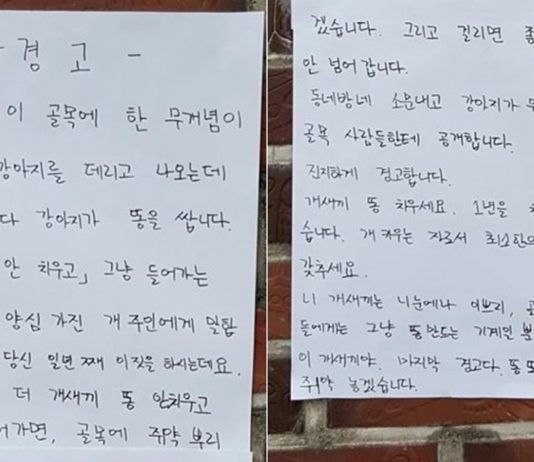 경고 -
이 골목에 한 무개념이
강아지를 데리고 나오는데
다 강아지가 똥을 쌉니다.
안 치우고」 그냥 들어가는
양심 가진 개 주인에게 말함
당신 일년 째 이짓을 하시는데요.
더 개새끼 똥 안치우고
어가면, 골목에 쥐약 뿌리
겠습니다. 그리고 걸리면
안 넘어 갑니다.
동네방네 소문내고 강아지가
골목 사람들한테 공개합니다.
진지하게 경고합니다.
개새끼 똥 치우세요. 1년을
습니다. 개 키우는 자로서 최소한의
갖추세요.
니 개새끼는 니눈에나 이쁘지,
들에게는 그냥 똥만드는 기계일 뿐
이 개새끼야. 마지막 경고다. 똥 또
쥐약 놓겠습니다.